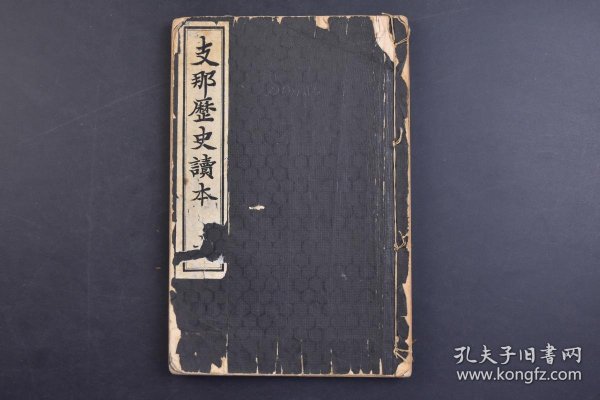 支那歷史讀本
孔夫子旧書网
www.kongfz.com